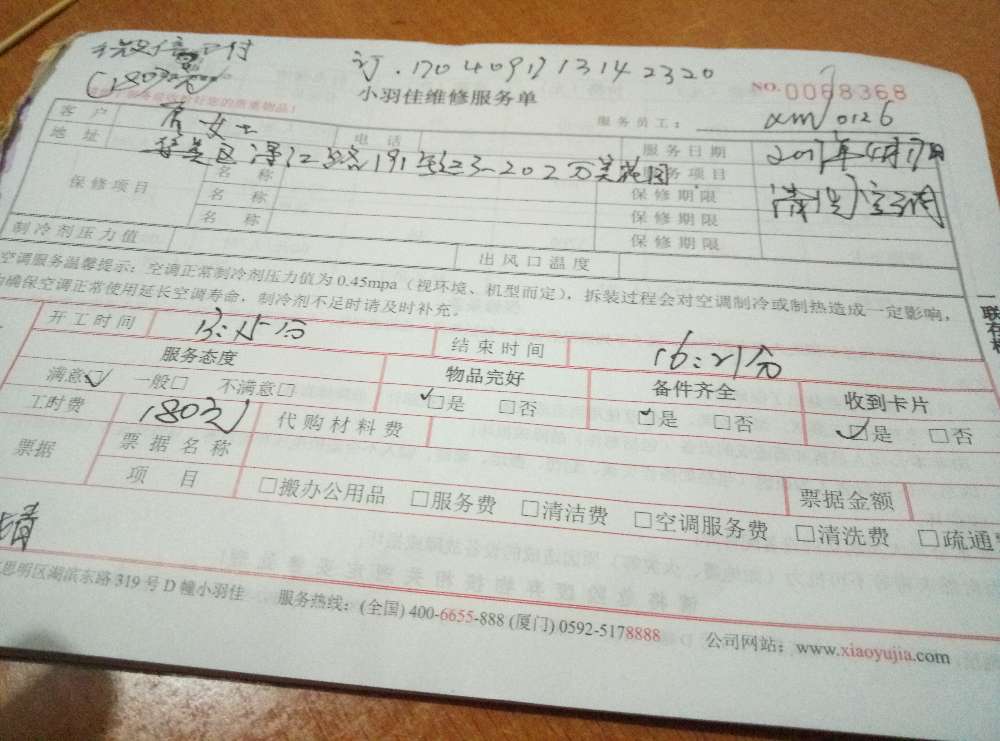 订.170409171314 2320
(180元)
小羽佳维修服务单
NO.0068368
服务员工: xm0126
客户 女士 电话 服务日期 2017年4月17日
地址 区 路191号 3-202万美花园 服务项目 清洗空调
保修项目 名称 保修期限
名称 保修期限
名称 保修期限
制冷剂压力值 出风口温度
空调服务温馨提示:空调正常制冷剂压力值为0.45mpa(视环境、机型而定),拆装过程会对空调制冷或制热造成一定影响,
确保空调正常使用延长空调寿命,制冷剂不足时请及时补充。
开工时间 结束时间 16:21分
服务态度 物品完好 备件齐全 收到卡片
满意☑ 一般□ 不满意□ ☑是 □否 ☑是 □否 ☑是 □否
工时费 180元 代购材料费
票据 票据名称 票据金额
项目 □搬办公用品 □服务费 □清洁费 □空调服务费 □清洗费 □疏通
思明区湖滨东路319号D幢小羽佳 服务热线:(全国)400-6655-888 (厦门)0592-5178888 公司网站:www.xiaoyujia.com